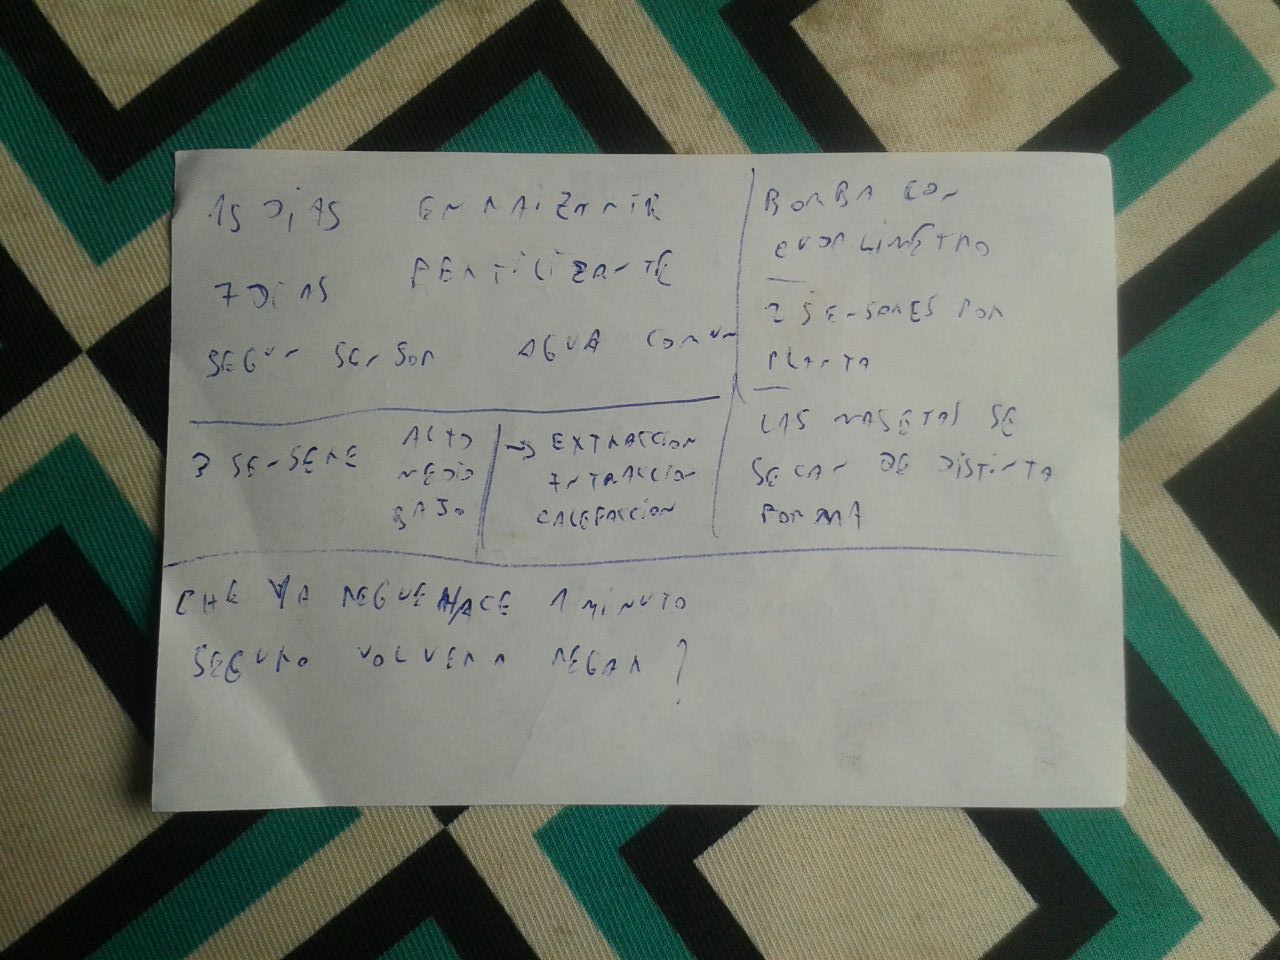 15 DIAS ENRAIZANTE
7 DIAS FERTILIZANTE
SEGUN SENSOR AGUA COMUN
3 SENSERE ALTO
MEDIO
BAJO
→ EXTRACCION
INTRACCION
CALEFACCION
BOMBA CON
CUADLIMETRO
2 SENSORES POR
PLANTA
LAS MASETAS SE
SECAN DE DISTINTA
FORMA
CHE YA REGUE HACE 1 MINUTO
SEGURO VOLVER A REGAR?